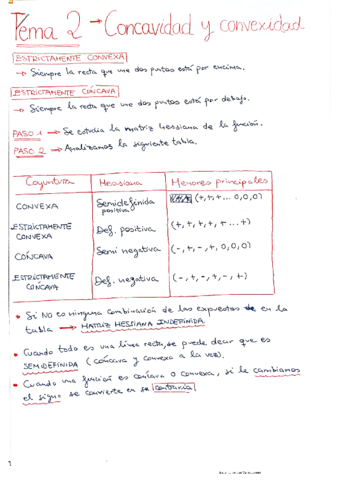 Tema 2 → Concavidad y convexidad
ESTRICTAMENTE CONVEXA
→ Siempre la recta que une dos puntos está por encima.
ESTRICTAMENTE CÓNCAVA
→ Siempre la recta que une dos puntos está por debajo.
PASO 1 → Se estudia la matriz hessiana de la función.
PASO 2 → Analizamos la siguiente tabla.
Conjuntura Hessiana Menores principales
CONVEXA Semidefinida positiva (+,+,+ ... 0,0,0)
ESTRICTAMENTE CONVEXA Def. positiva (+, +, +, +, + ... +)
CÓNCAVA Semi negativa (-, +, -, +, 0, 0, 0)
ESTRICTAMENTE CÓNCAVA Def. negativa (-, +, -, +, -, +)
• Si NO es ninguna combinación de las expuestas en la
tabla → MATRIZ HESSIANA INDEFINIDA
• Cuando todo es una línea recta, se puede decir que es
SEMIDEFINIDA (cóncava y convexa a la vez).
• Cuando una función es cóncava o convexa, si le cambiamos
el signo se convierte en su contraria